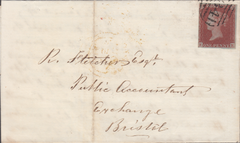 R. Fletcher Esqr
Public Accountant
Exchange
Bristol